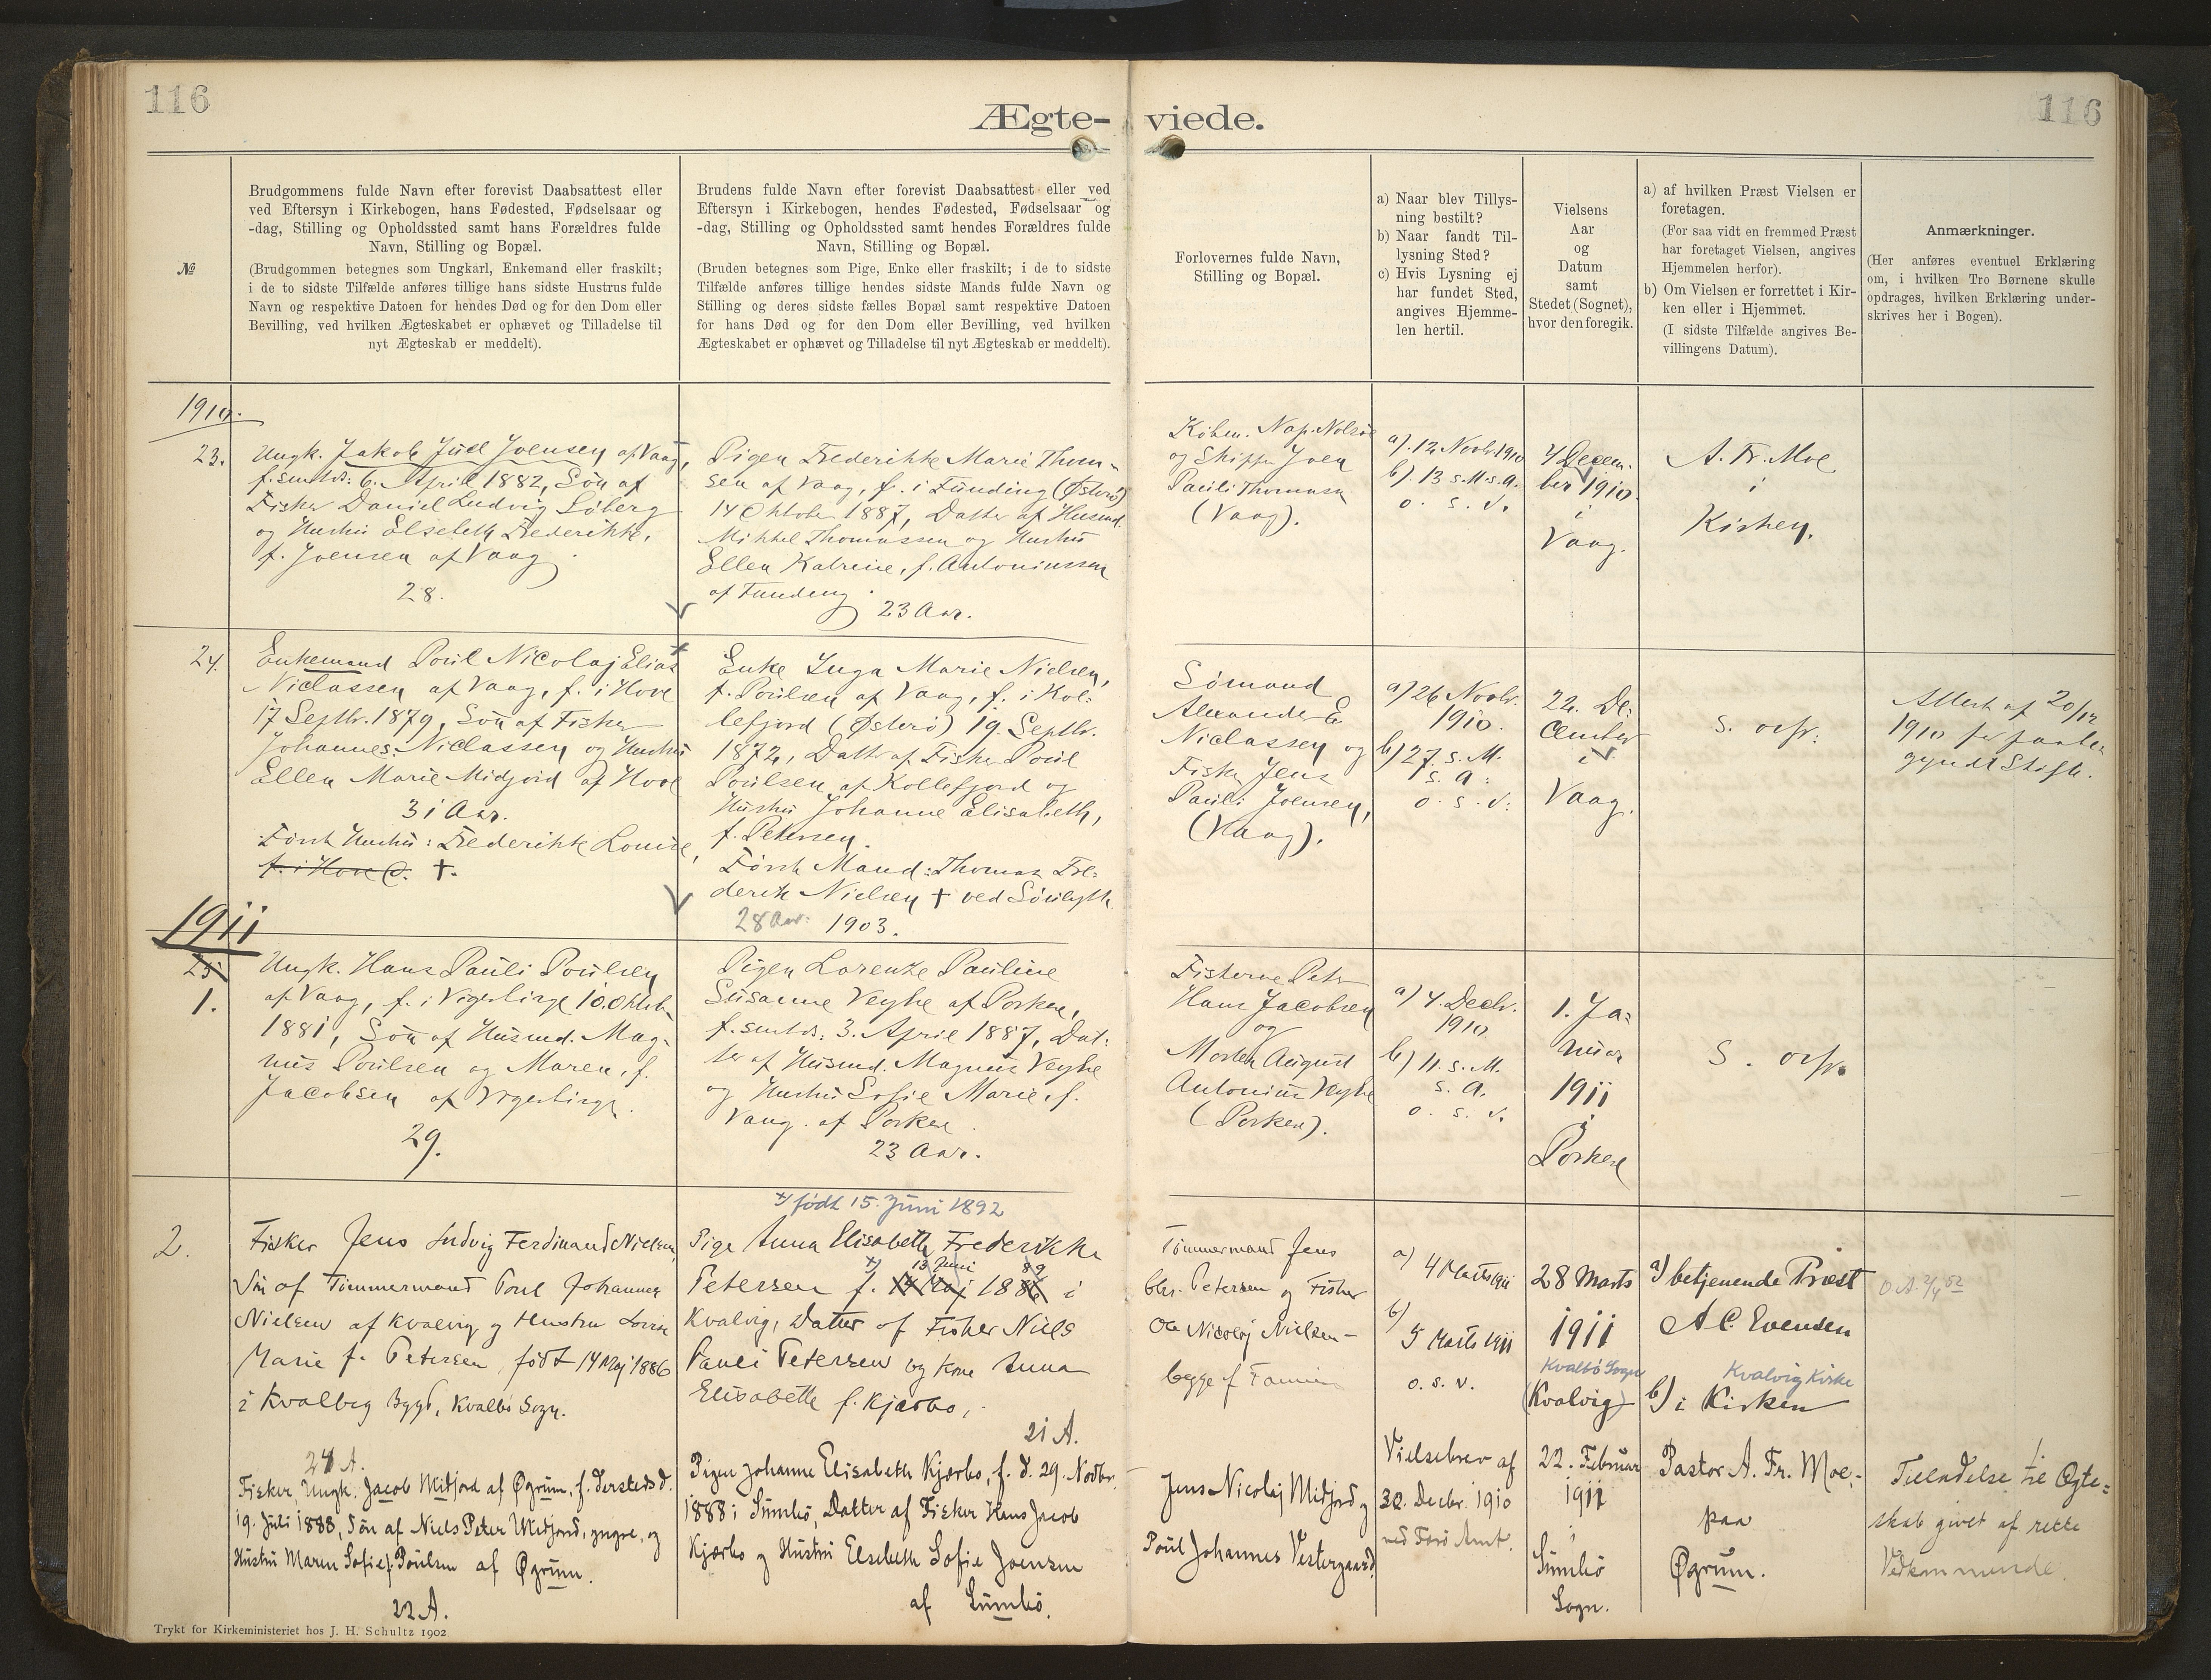 116
116
Ægte-viede.
№
Brudgommens fulde Navn efter forevist Daabsattest eller
ved Eftersyn i Kirkebogen, hans Fødested, Fødselsaar og
-dag, Stilling og Opholdssted samt hans Forældres fulde
Navn, Stilling og Bopæl.
(Brudgommen betegnes som Ungkarl, Enkemand eller fraskilt;
i de to sidste Tilfælde anføres tillige hans sidste Hustrus fulde
Navn og respektive Datoen for hendes Død og for den Dom eller
Bevilling, ved hvilken Ægteskabet er ophævet og Tilladelse til
nyt Ægteskab er meddelt).
Brudens fulde Navn efter forevist Daabsattest eller ved
Eftersyn i Kirkebogen, hendes Fødested, Fødselsaar og
-dag, Stilling og Opholdssted samt hendes Forældres fulde
Navn, Stilling og Bopæl.
(Bruden betegnes som Pige, Enke eller fraskilt; i de to sidste
Tilfælde anføres tillige hendes sidste Mands fulde Navn og
Stilling og deres sidste fælles Bopæl samt respektive Datoen
for hans Død og for den Dom eller Bevilling, ved hvilken
Ægteskabet er ophævet og Tilladelse til nyt Ægteskab er meddelt).
Forlovernes fulde Navn,
Stilling og Bopæl.
a) Naar blev Tillys-
ning bestilt?
b) Naar fandt Til-
lysning Sted?
c) Hvis Lysning ej
har fundet Sted,
angives Hjemme-
len hertil.
Vielsens
Aar
og
Datum
samt
Stedet (Sognet),
hvor den foregik.
a) af hvilken Præst Vielsen er
foretagen.
(For saa vidt en fremmed Præst
har foretaget Vielsen, angives
Hjemmelen herfor).
b) Om Vielsen er forrettet i Kir-
ken eller i Hjemmet.
(I sidste Tilfælde angives Be-
villingens Datum).
Anmærkninger.
(Her anføres eventuel Erklæring
om, i hvilken Tro Børnene skulle
opdrages, hvilken Erklæring under-
skrives her i Bogen).
1910.
23.
Ungk. Jakob Juul Joensen af Vaag,
f. smstds. 6. April 1882, Søn af
Fisker Daniel Ludvig Søberg
og Hustru Elsebeth Frederikke,
f. Joensen af Vaag.
28.
Pigen Frederikke Marie Thom-
sen af Vaag, f. i Funding (Østerø)
14 Oktober 1887, Datter af Husmd.
Mikkel Thomassen og Hustru
Ellen Katrine, f. Antoniussen
af Funding.
23 Aar.
Købm. Nap. Nolsøe
og Skipper Joen
Pauli Thomsen
(Vaag).
a). 12 Novbr. 1910
b). 13 s. M. s. A.
o. s. v.
4 Decem-
ber 1910.
i
Vaag.
A. Fr. Moe
i
Kirken.
24.
Enkemand Poul Nicolaj Elias
Niclassen af Vaag, f. i Hove
17 Septbr. 1879, Søn af Fisker
Johannes Niclassen og Hustru
Ellen Marie Midjord af Hove
31 Aar.
Første Hustru: Frederikke Louise,
f. i Hove @. †.
Enke Inga Marie Nielsen,
f. Poulsen af Vaag, f. i Kol-
lefjord (Østerø) 19. Septbr.
1872, Datter af Fisker Poul
Poulsen af Kollefjord og
Hustru Johanne Elisabeth,
f. Petersen.
Første Mand: Thomas Fre-
derik Nielsen † ved
28 Aar. 1903.
Sømand
Alexander E.
Niclassen og
Fisker Jens
Pauli Joensen,
(Vaag).
a) 26 Novbr.
1910.
b) 27. s. M.
s. A.
o. s. v.
22. De-
cember
i
Vaag.
S. ovfr.
Attest af 20/12
1910
Skifte.
1911
25
1.
Ungk. Hans Pauli Poulsen
af Vaag, f. i Vigerbirge 10. Oktob.
1881, Søn af Husmd. Mag-
nus Poulsen og Maren, f.
Jacobsen af Vigerbirge.
29.
Pigen Lorentze Pauline
Susanne Veyhe af Porkere,
f. smstds. 3. April 1887, Dat-
ter af Husmd. Magnus Veyhe
og Hustru Sofie Marie, f.
Vang. af Porkere
23 Aar.
Fiskerne Peter
Hans Jacobsen
og
Morten August
Antonius Veyhe
(Porkere).
a) 4. Decbr.
1910
b) 11. s. M.
s. A.
o. s. v.
1. Ja-
nuar
1911
i
Porkere
S. ovfr.
2.
Fisker Jens Ludvig Ferdinand Nielsen,
Søn af Tømmermand Poul Johannes
Nielsen af Kvalvig og Hustru Lovise
Marie f. Petersen, født 14 Maj 1886
i Kvalvig Bygd, Kvalbø Sogn.
24 A.
x) født 15. Juni 1892
Pige Anna Elisabeth Frederikke
Petersen f. x) 14 Maj 13 Juni 1886 89 i
Kvalvig, Datter af Fisker Niels
Pauli Petersen og Kone Anna
Elisabeth f. Kjærbo,
21 A.
Tømmermand Jens
Chr. Petersen og Fisker
Ole Nicolaj Nielsen -
begge f
a) 4 Marts 1911
b)
5 Marts 1911
o. s. v.
28 Marts
1911
Kvalbø Sogn
(Kvalvig)
a) betjenende Præst
A. C. Evensen
Kvalvig Kirke
b) i Kirken
Fisker, Ungk. Jacob Midjord af Øgrum, f. dersteds d.
19. Juli 1888, Søn af Niels Peter Midjord, yngre, og
Hustru Maren Sofie f. Poulsen af Øgrum.
22 A.
Pigen Johanne Elisabeth Kjærbo, f. d. 29. Novbr.
1888 i Sumbø, Datter af Fisker Hans Jacob
Kjærbo og Hustru Elsebeth Sofie Joensen
af Sumbø.
Jens Nicolaj Midjord og
Poul Johannes Vestergaard
Vielsebrev af
30. Decbr. 1910
ved Færø Amt.
22. Februar
1911
i
Sumbø
Sogn.
Pastor A. Fr. Moe.
paa
Øgrum.
Tilladelse til Ægte-
skab givet af rette
Vedkommende.
Trykt for Kirkeministeriet hos J. H. Schultz 1902